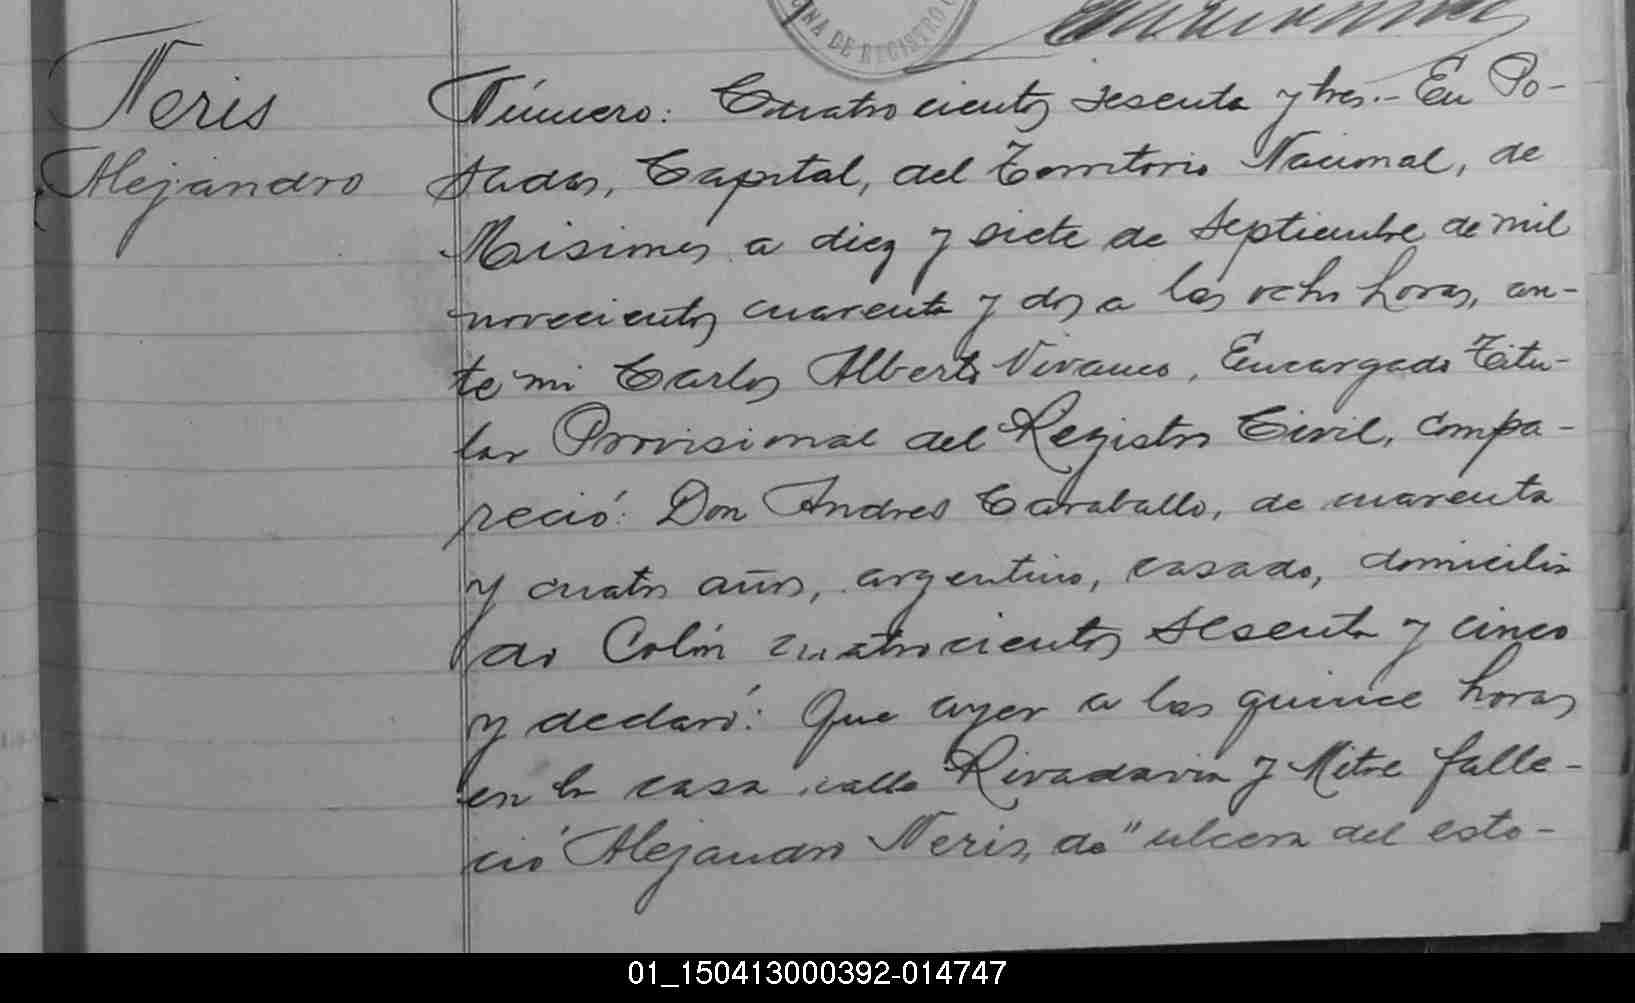 NA DE REGISTRO
Neris
Alejandro
Número: Cuatrocientos sesenta y tres.- En Po-
sadas, Capital, del Territorio Nacional, de
Misiones a diez y siete de Septiembre de mil
novecientos cuarenta y dos a las ocho horas, an-
te mi Carlos Alberto Vivanco, Encargado Titu-
lar Provisional del Registro Civil, compa-
reció: Don Andres Caraballo, de cuarenta
y cuatro años, argentino, casado, domicilia
do Colón cuatrocientos sesenta y cinco
y declaró: Que ayer a las quince horas
en la casa calle Rivadavia y Mitre falle-
ció Alejandro Neris, de "ulcera del esto-
01_150413000392-014747